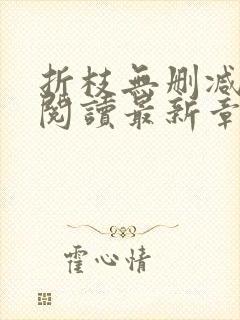 折枝無刪减
閱讀最新章
霍心情